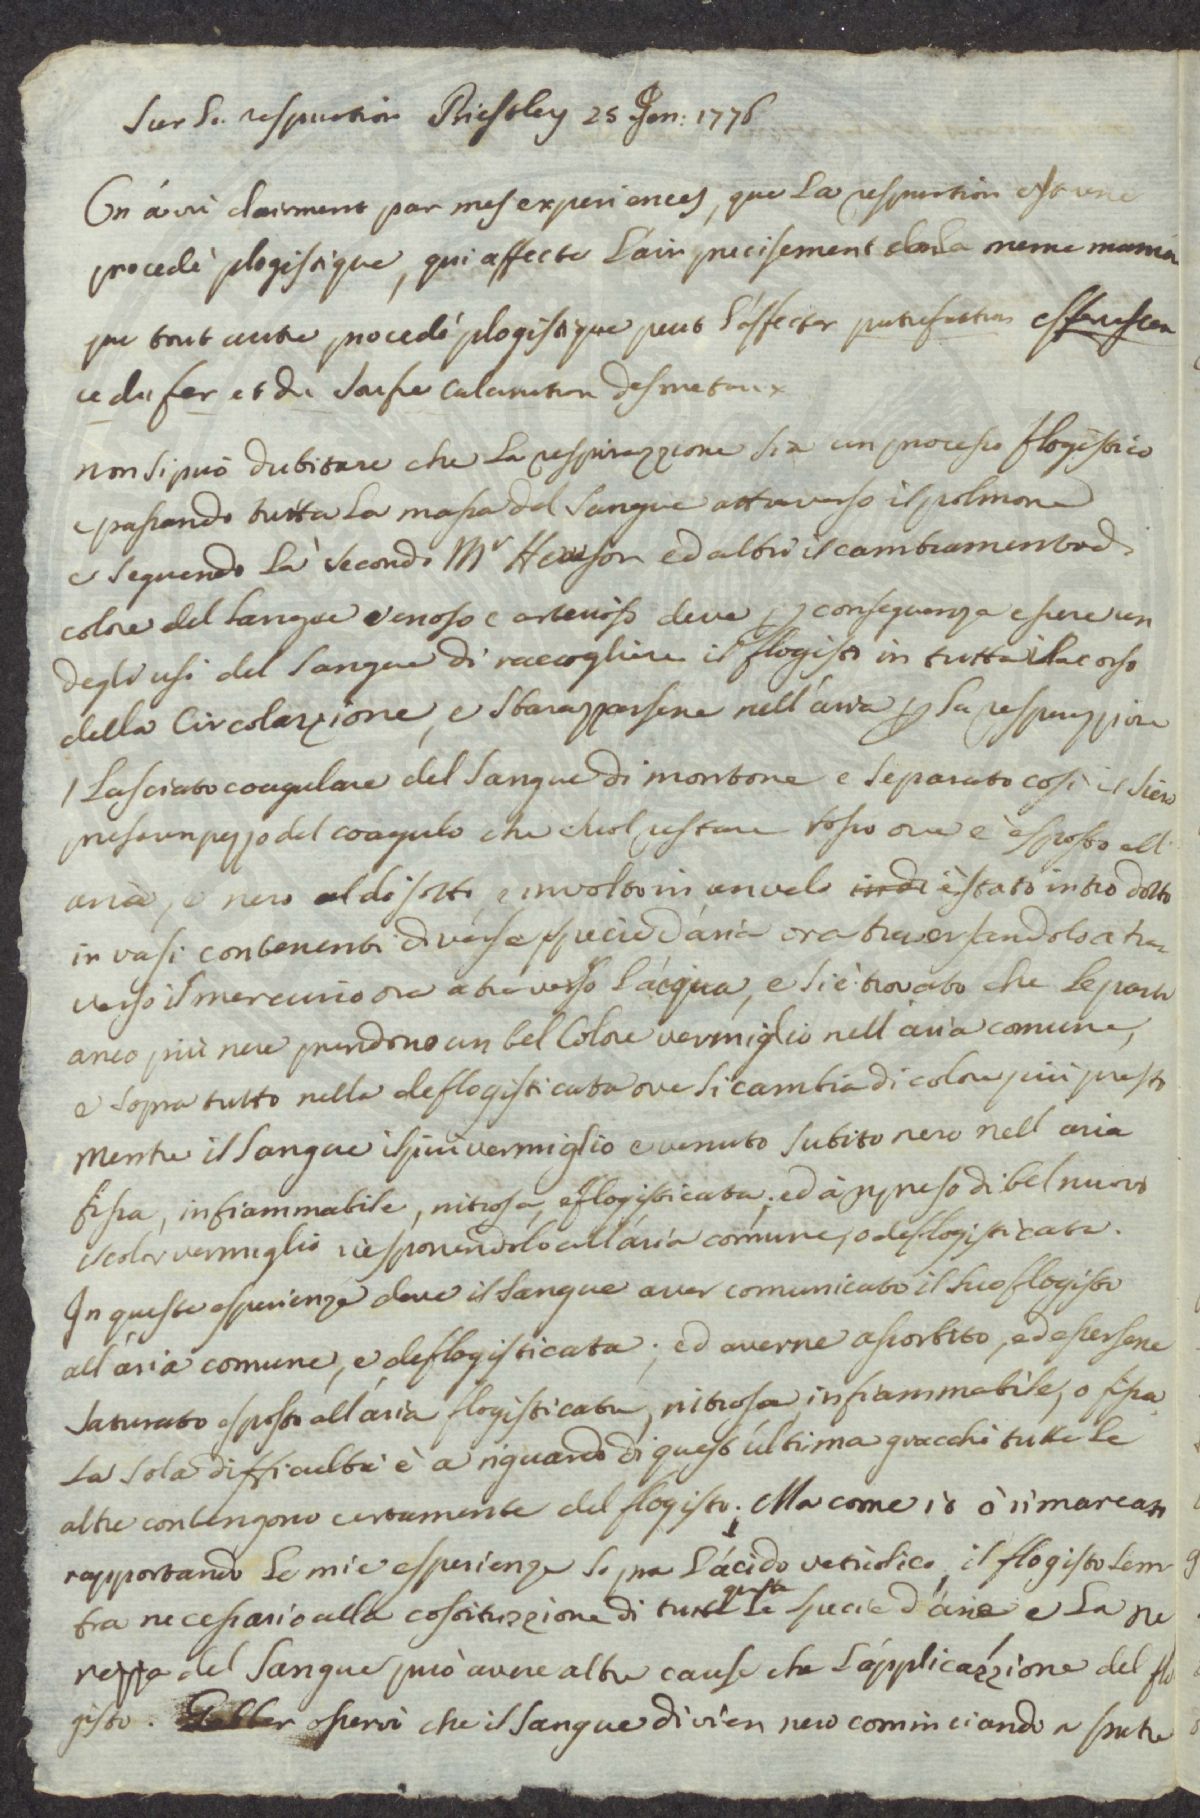 Sur la respiration Priestley 25 Jen: 1776
On à vù clairment par mes experiences, que la respiration est une
procedè plogistique, qui affecte l'air precisement de la meme manie
que tout autre procedé plogistique peut l'affecter putrefaction effervescen
ce du fer et du soufre calcination des metaux
non si può dubitare che la respirazzione sia un processo flogistico
e passando tutta la massa del sangue attraverso il polmone
e seguendo là secondo Mr Hewson ed altri il cambiamento di
colore del sangue venoso e arterioso deve per conseguenza essere un
degli usi del sangue di raccogliere il flogisto in tutto il corso
della Circolazione, e sbarazzarsene nell'aria per la respirazzione
/ Lasciato coagulare del sangue di montone e separato così il siero
preso un pezzo del coagulo che suol restare rosso ove è esposto all
aria, e nero al di sotto, e involto in un velo indi è stato introdotto
in vasi contenenti diverse specie d'aria ora traversandolo a tra
verso il mercurio ora a traverso l'acqua, e si è trovato che le parti
anco più nere prendono un bel Colore vermiglio nell'aria comune,
e sopra tutto nella deflogisticata ove si cambia di colore più presto
Mentre il sangue il più vermiglio è venuto subito nero nell aria
fissa, infiammabile, nitrosa, e flogisticata; ed à ripreso di bel nuovo
il color vermiglio riesponendolo all'aria comune, o deflogisticata.
In queste esperienze deve il sangue aver comunicato il suo flogisto
all'aria comune, e deflogisticata; ed averne assorbito, ed essersene
saturato esposto all'aria flogisticata, nitrosa, infiammabile, o fissa
La sola difficultà è a riguardo di quest'ultima giacchè tutte le
altre contengono certamente del flogisto. Ma come io ò rimarcato
rapportando le mie esperienze sopra l'acido vetriolico, il flogisto sem
bra necessario alla costituzzione di tutte questa le specie d'aria e la ne
rezza del sangue può avere altre cause che l'applicazzione del flo
gisto. Haller osservò che il sangue divien nero cominciando a putre